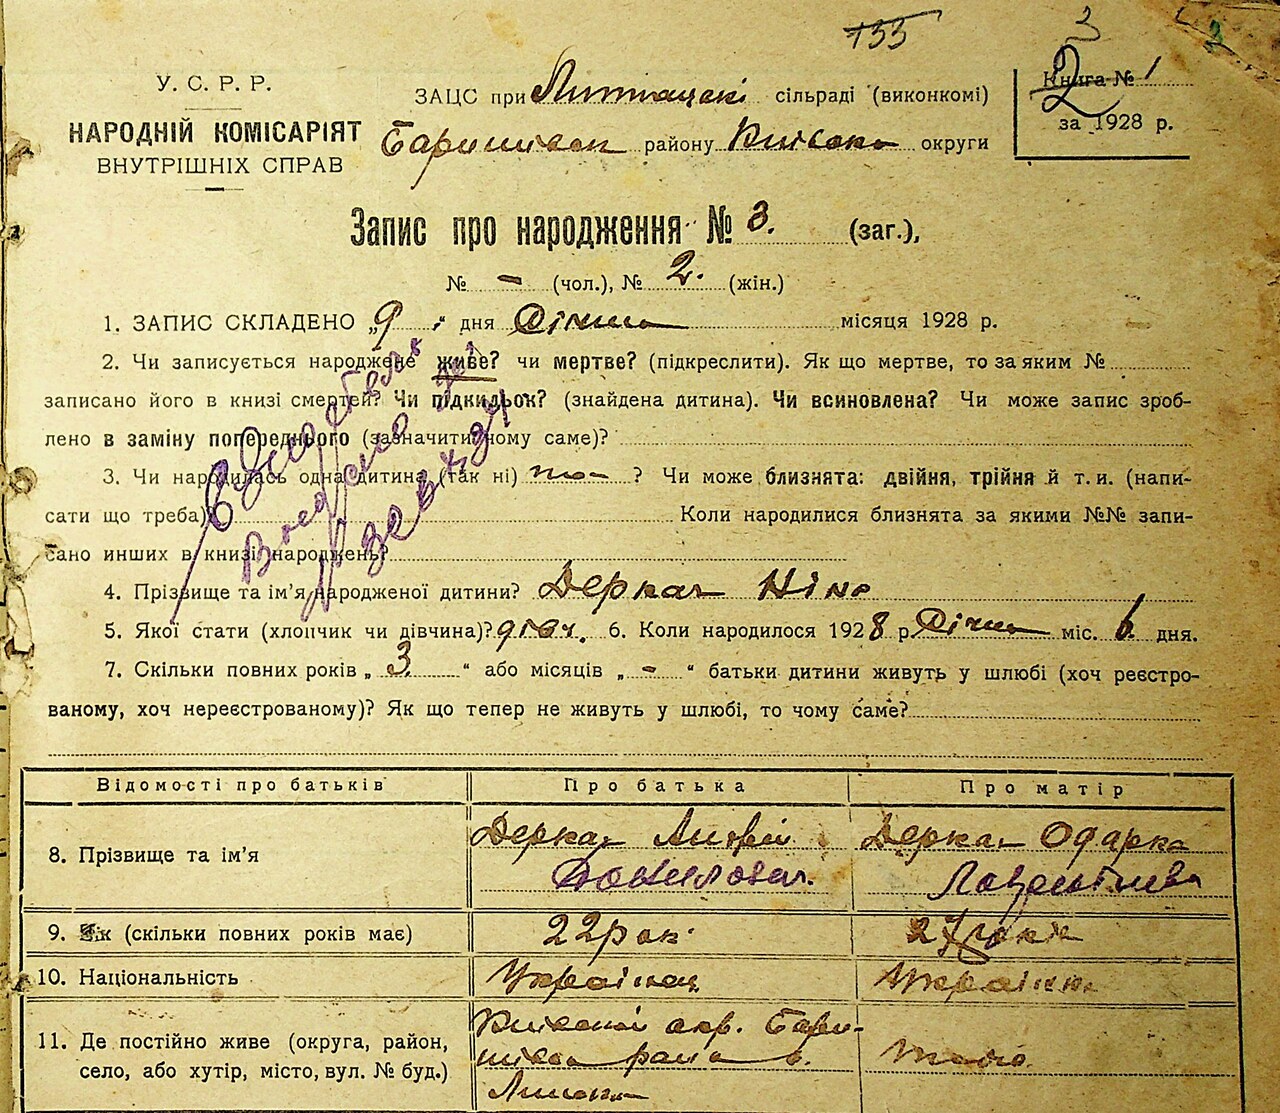 133
3
2
У. С. Р. Р.
НАРОДНІЙ КОМІСАРІЯТ
ВНУТРІШНІХ СПРАВ
ЗАЦС при сільраді (виконкомі)
району округи
Книга № 1
2
за 1928 р.
Запис про народження № 3. (заг.),
№ - (чол.), № 2. (жін.)
1. ЗАПИС СКЛАДЕНО „9" дня Січня місяця 1928 р.
2. Чи записується народжене живе? чи мертве? (підкреслити). Як що мертве, то за яким №
записано його в книзі смертей? Чи підкидьок? (знайдена дитина). Чи всиновлена? Чи може запис зроб-
лено в заміну попереднього (зазначити чому саме)?
3. Чи народилась одна дитина (так ні) ? Чи може близнята: двійня, трійня й т. и. (напи-
сати що треба) Коли народилися близнята за якими №№ запи-
сано инших в книзі народжень?
4. Прізвище та ім'я народженої дитини? Деркач Ніна
5. Якої статі (хлопчик чи дівчина)? дівч. 6. Коли народилося 1928 р. Січня міс. 6 дня.
7. Скільки повних років „ 3 " або місяців „ - " батьки дитини живуть у шлюбі (хоч реєстро-
ваному, хоч нереєстрованому)? Як що тепер не живуть у шлюбі, то чому саме?
Відомості про батьків Про батька Про матір
8. Прізвище та ім'я Деркач Андрій Деркач Одарка
Данилович. Лаврентіева
9. (скільки повних років має) 22 рок. 27 років
10. Національність Українец Українка
11. Де постійно живе (округа, район, окр. Бари-
село, або хутір, місто, вул. № буд.) с.